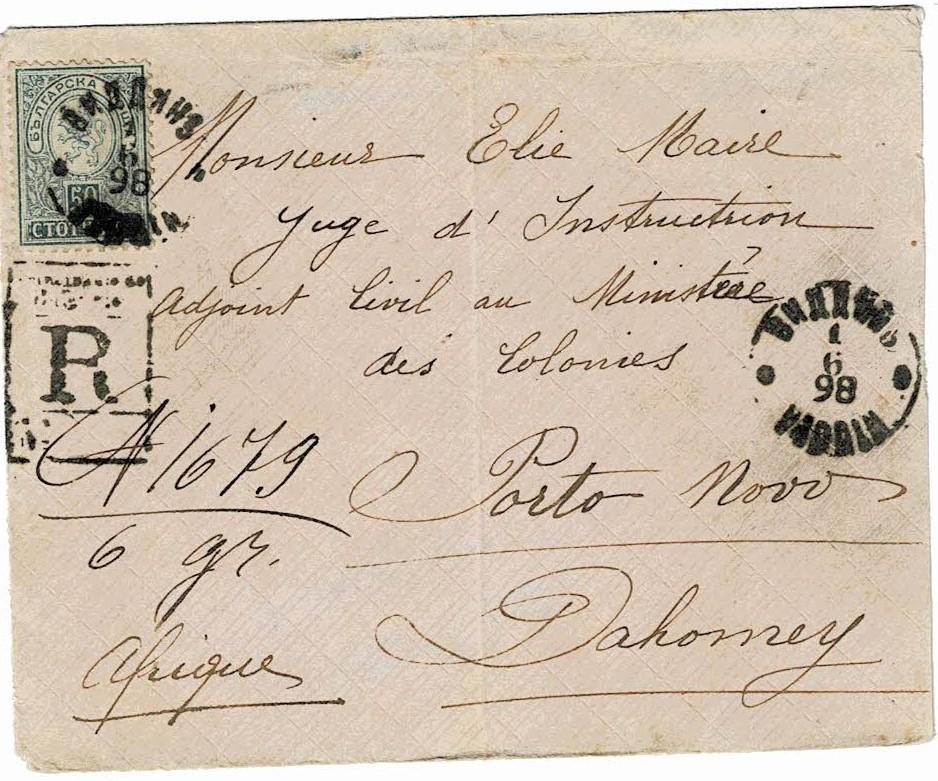 БЪЛГАРСКА
50
ВИДДИНЪ
98
Monsieur Elie Maire
Juge d'Instruction
Adjoint Civil au Ministère
des Colonies
ВИДДИНЪ
1
6
98
VIDDIN
R
N 1679
6 gr.
Porto Novo
Dahomey
Afrique